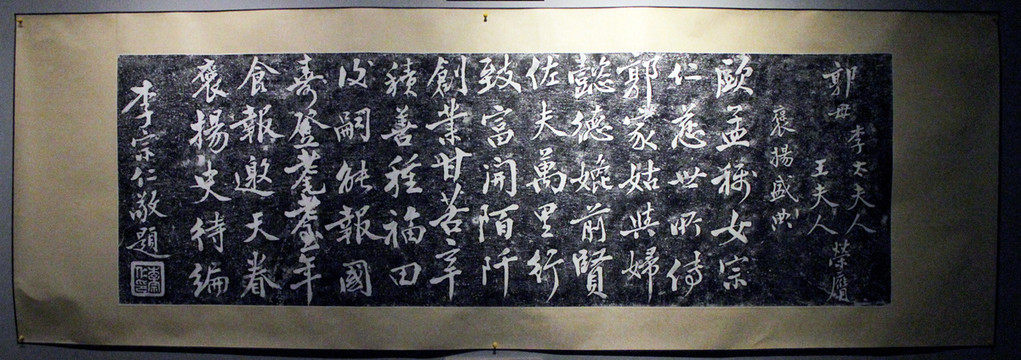 郭母李太夫人
王夫人榮膺
褒揚盛典
歐孟稱女宗
仁慈世所傳
郭家姑與婦
懿德媲前賢
佐夫萬里行
致富開陌阡
創業甘苦辛
積善種福田
後嗣能報國
壽登耄耋年
食報邀天眷
褒揚史待編
李宗仁敬題